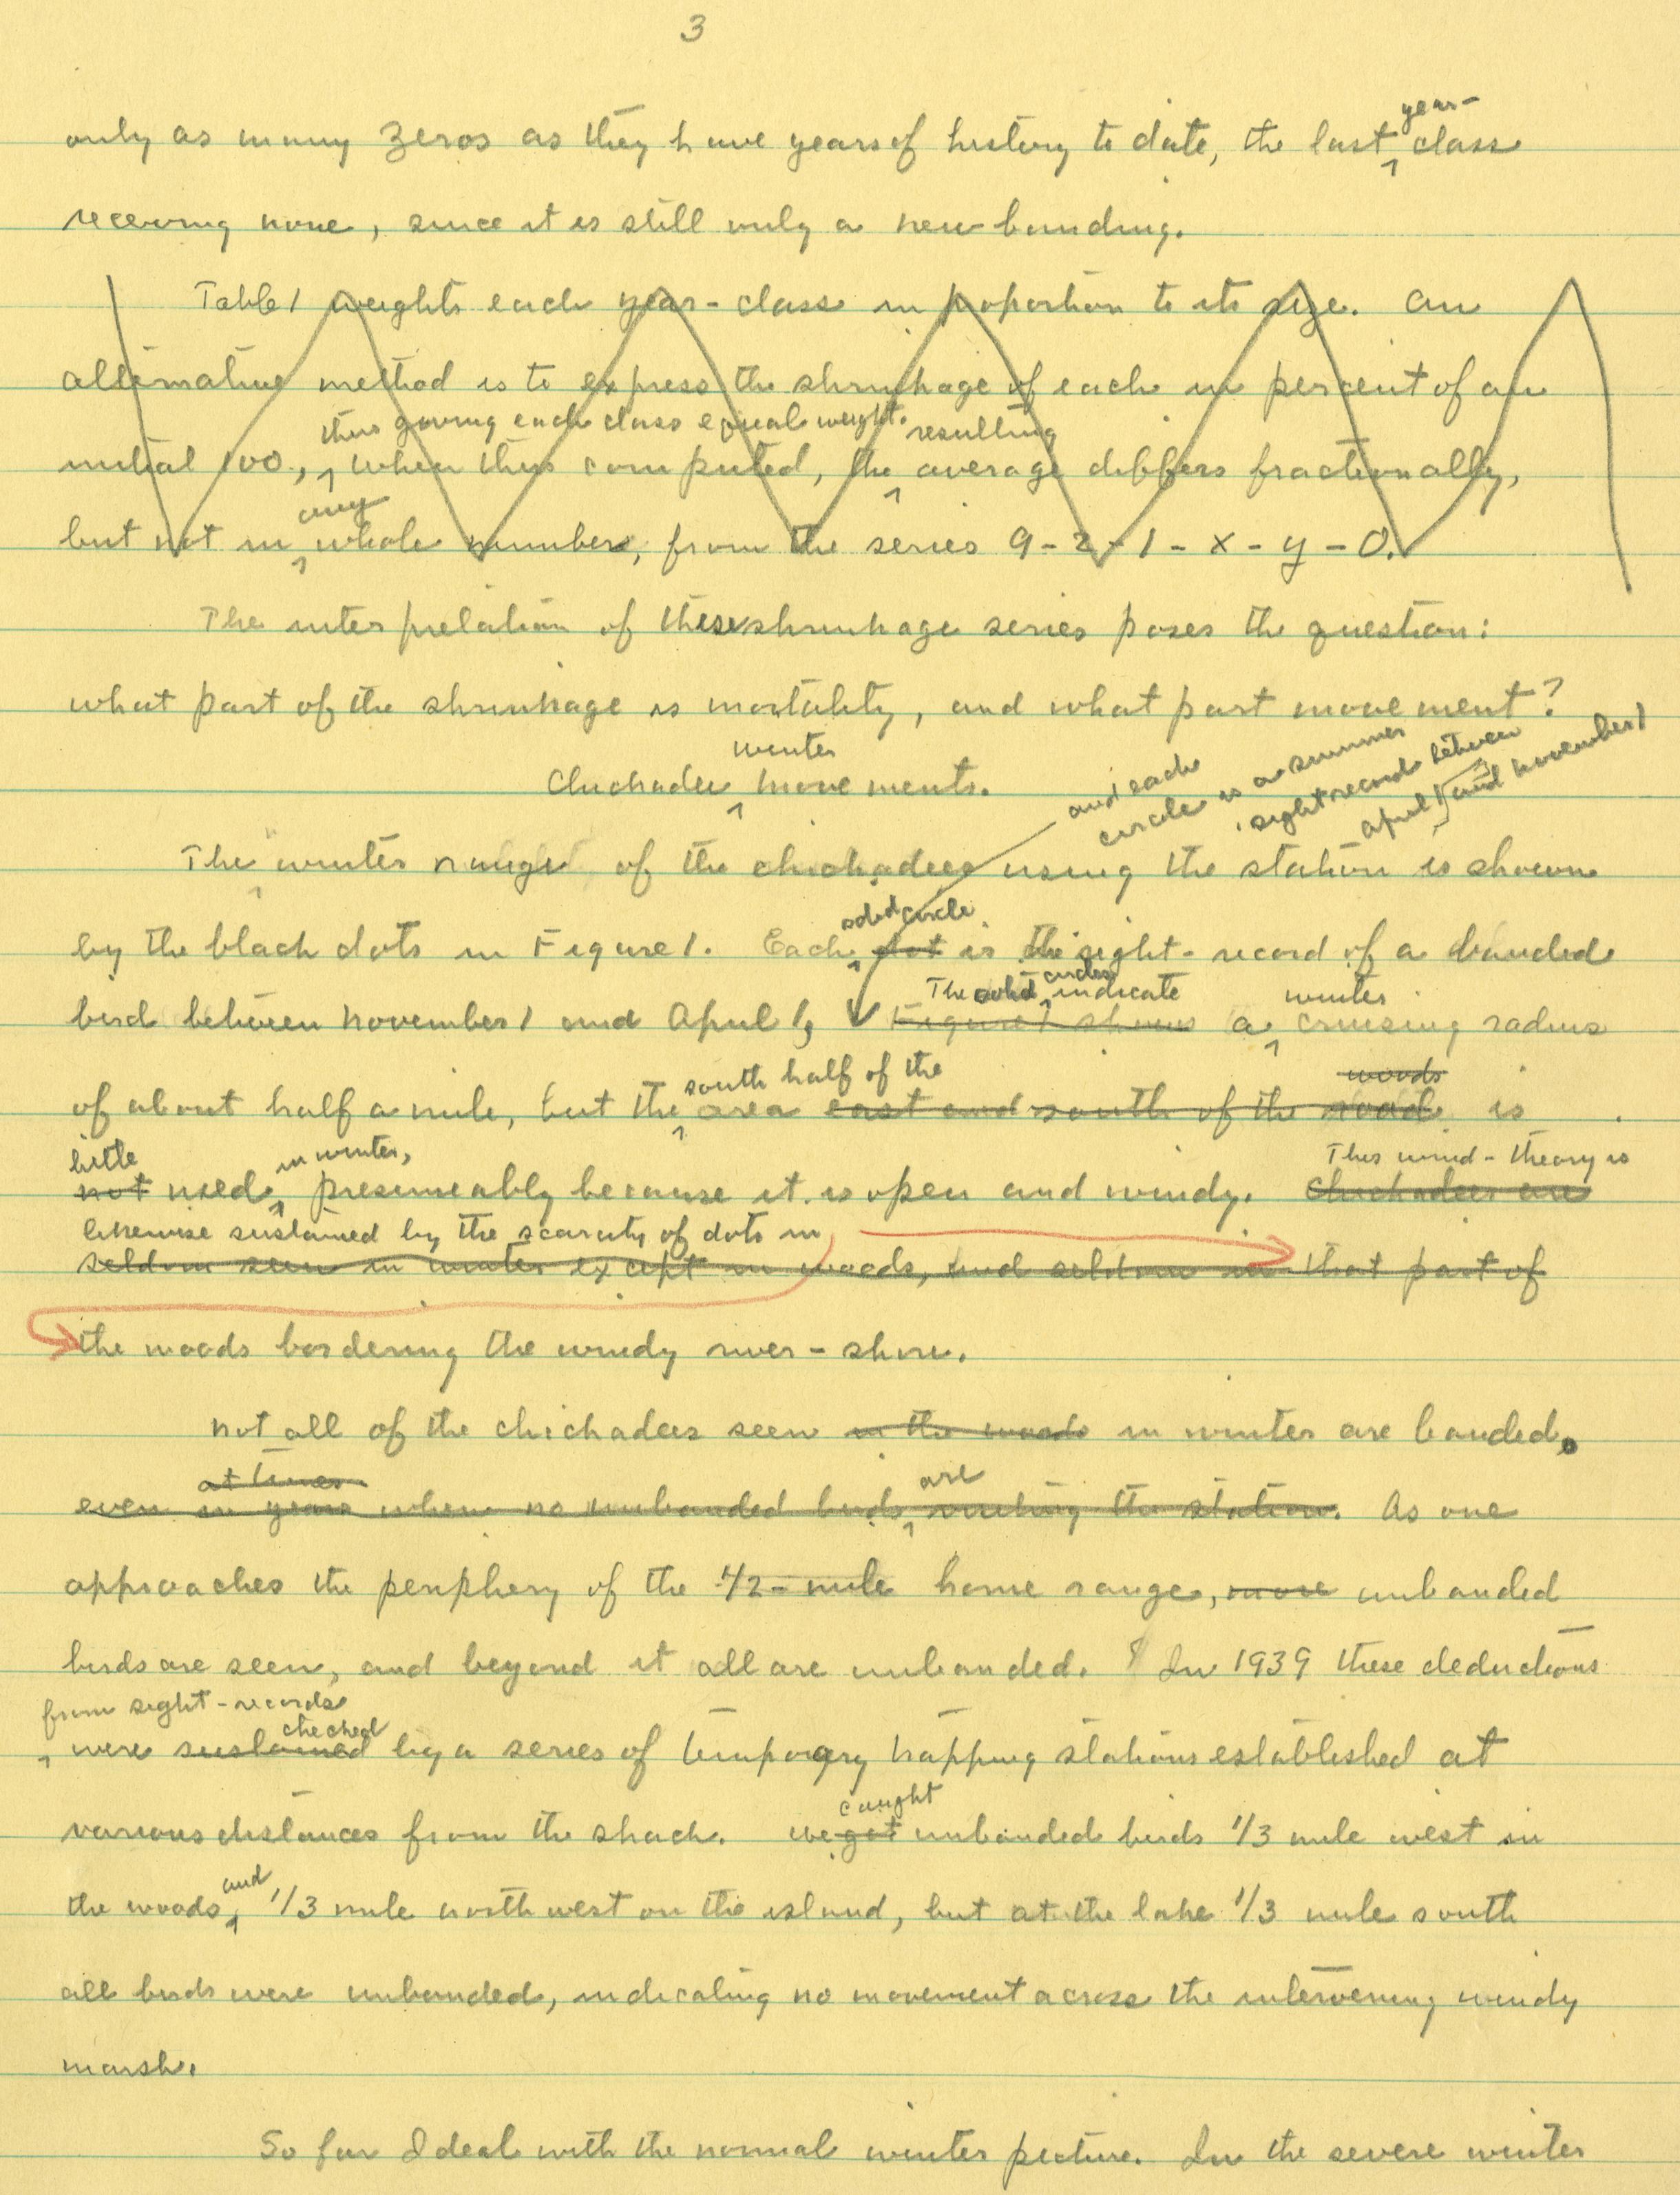 3
year-
only as many zeros as they have years of history to date, the last ^ class
receiving none, since it is still only a new banding.
Table 1 weights each year-class in proportion to its size. An
alternative method is to express the shrinkage of each in percent of an
thus giving each class equal weight. resulting
initial 100, ^ When thus computed, the ^ average differs fractionally,
any
but not in ^ whole number, from the series 9-2-1-x-y-0.
The interpretation of these shrinkage series poses the question:
what part of the shrinkage is mortality, and what part movement?
winter
Chickadee ^ movements.
and each
circle is a summer
sight record between
April 1 and November 1
The winter range of the chickadees using the station is shown
solid circle
by the black dots in Figure 1. Each ^ dot is the sight-record of a banded
The solid circles ^ indicate winter
bird between November 1 and April 1, Figure 1 shows a ^ cruising radius
south half of the woods
of about half a mile, but the ^ area east and south of the road is
little in winter, This wind-theory is
not used ^ presumeably because it is open and windy. Chickadees are
likewise sustained by the scarcity of dots in
seldom seen in winter except in woods, and seldom in that part of
the woods bordering the windy river-shore.
Not all of the chickadees seen in the woods in winter are banded.
at times are
even in years when no unbanded birds ^ visiting the station. As one
approaches the periphery of the 1/2-mile home range, more unbanded
birds are seen, and beyond it all are unbanded. ¶ In 1939 these deductions
from sight-records
checked
^ were sustained by a series of temporary trapping stations established at
caught
various distances from the shack. We got unbanded birds 1/3 mile west in
and
the woods, ^ 1/3 mile northwest on the island, but at the lake 1/3 mile south
all birds were unbanded, indicating no movement across the intervening windy
marsh.
So far I deal with the normal winter picture. In the severe winter